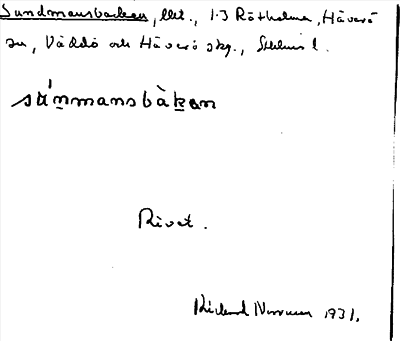 Sundmansbacken, lht., 1:3 Rötholma, Häverö
sn, Väddö och Häverö skg., Sthlms l.
sú̱nmansbàkən
Rivet.
Rickard 1931.